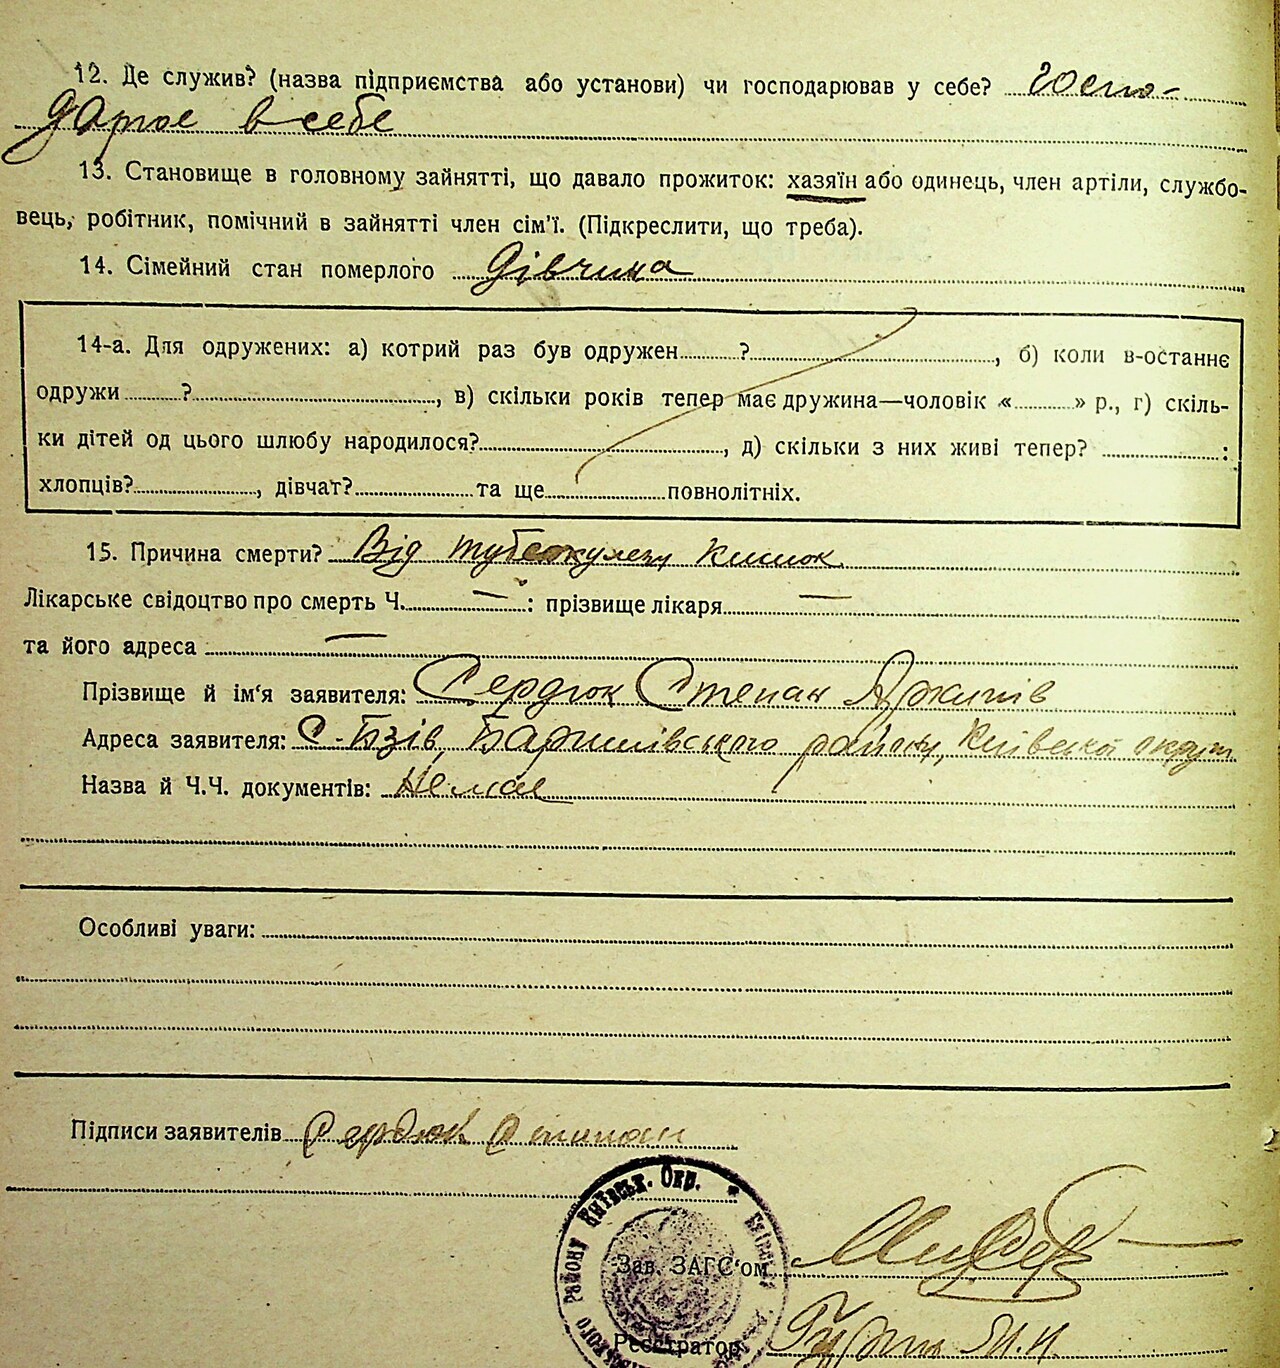 12. Де служив? (назва підприємства або установи) чи господарював у себе? Госпо-
дарює в себе
13. Становище в головному зайнятті, що давало прожиток: хазяїн або одинець, член артілі, службо-
вець, робітник, помічний в зайнятті член сім'ї. (Підкреслити, що треба).
14. Сімейний стан померлого Дівчина
14-а. Для одружених: а) котрий раз був одружен ? , б) коли в-останнє
одружи ? , в) скільки років тепер має дружина—чоловік « » р., г) скіль-
ки дітей од цього шлюбу народилося? , д) скільки з них живі тепер? :
хлопців? , дівчат? та ще повнолітніх.
15. Причина смерти? Від туберкулезу кишок
Лікарське свідоцтво про смерть Ч. — : прізвище лікаря —
та його адреса —
Прізвище й ім'я заявителя: Сердюк Степан Архипів
Адреса заявителя: С-Бзів, Баришівського району, Київської округи
Назва й Ч.Ч. документів: Немає
Особливі уваги:
Підписи заявителів Сердюк Степан
РАЙОНУ КИЇВСЬК. ОКР. *
Зав. ЗАГС'ом
Реєстратор